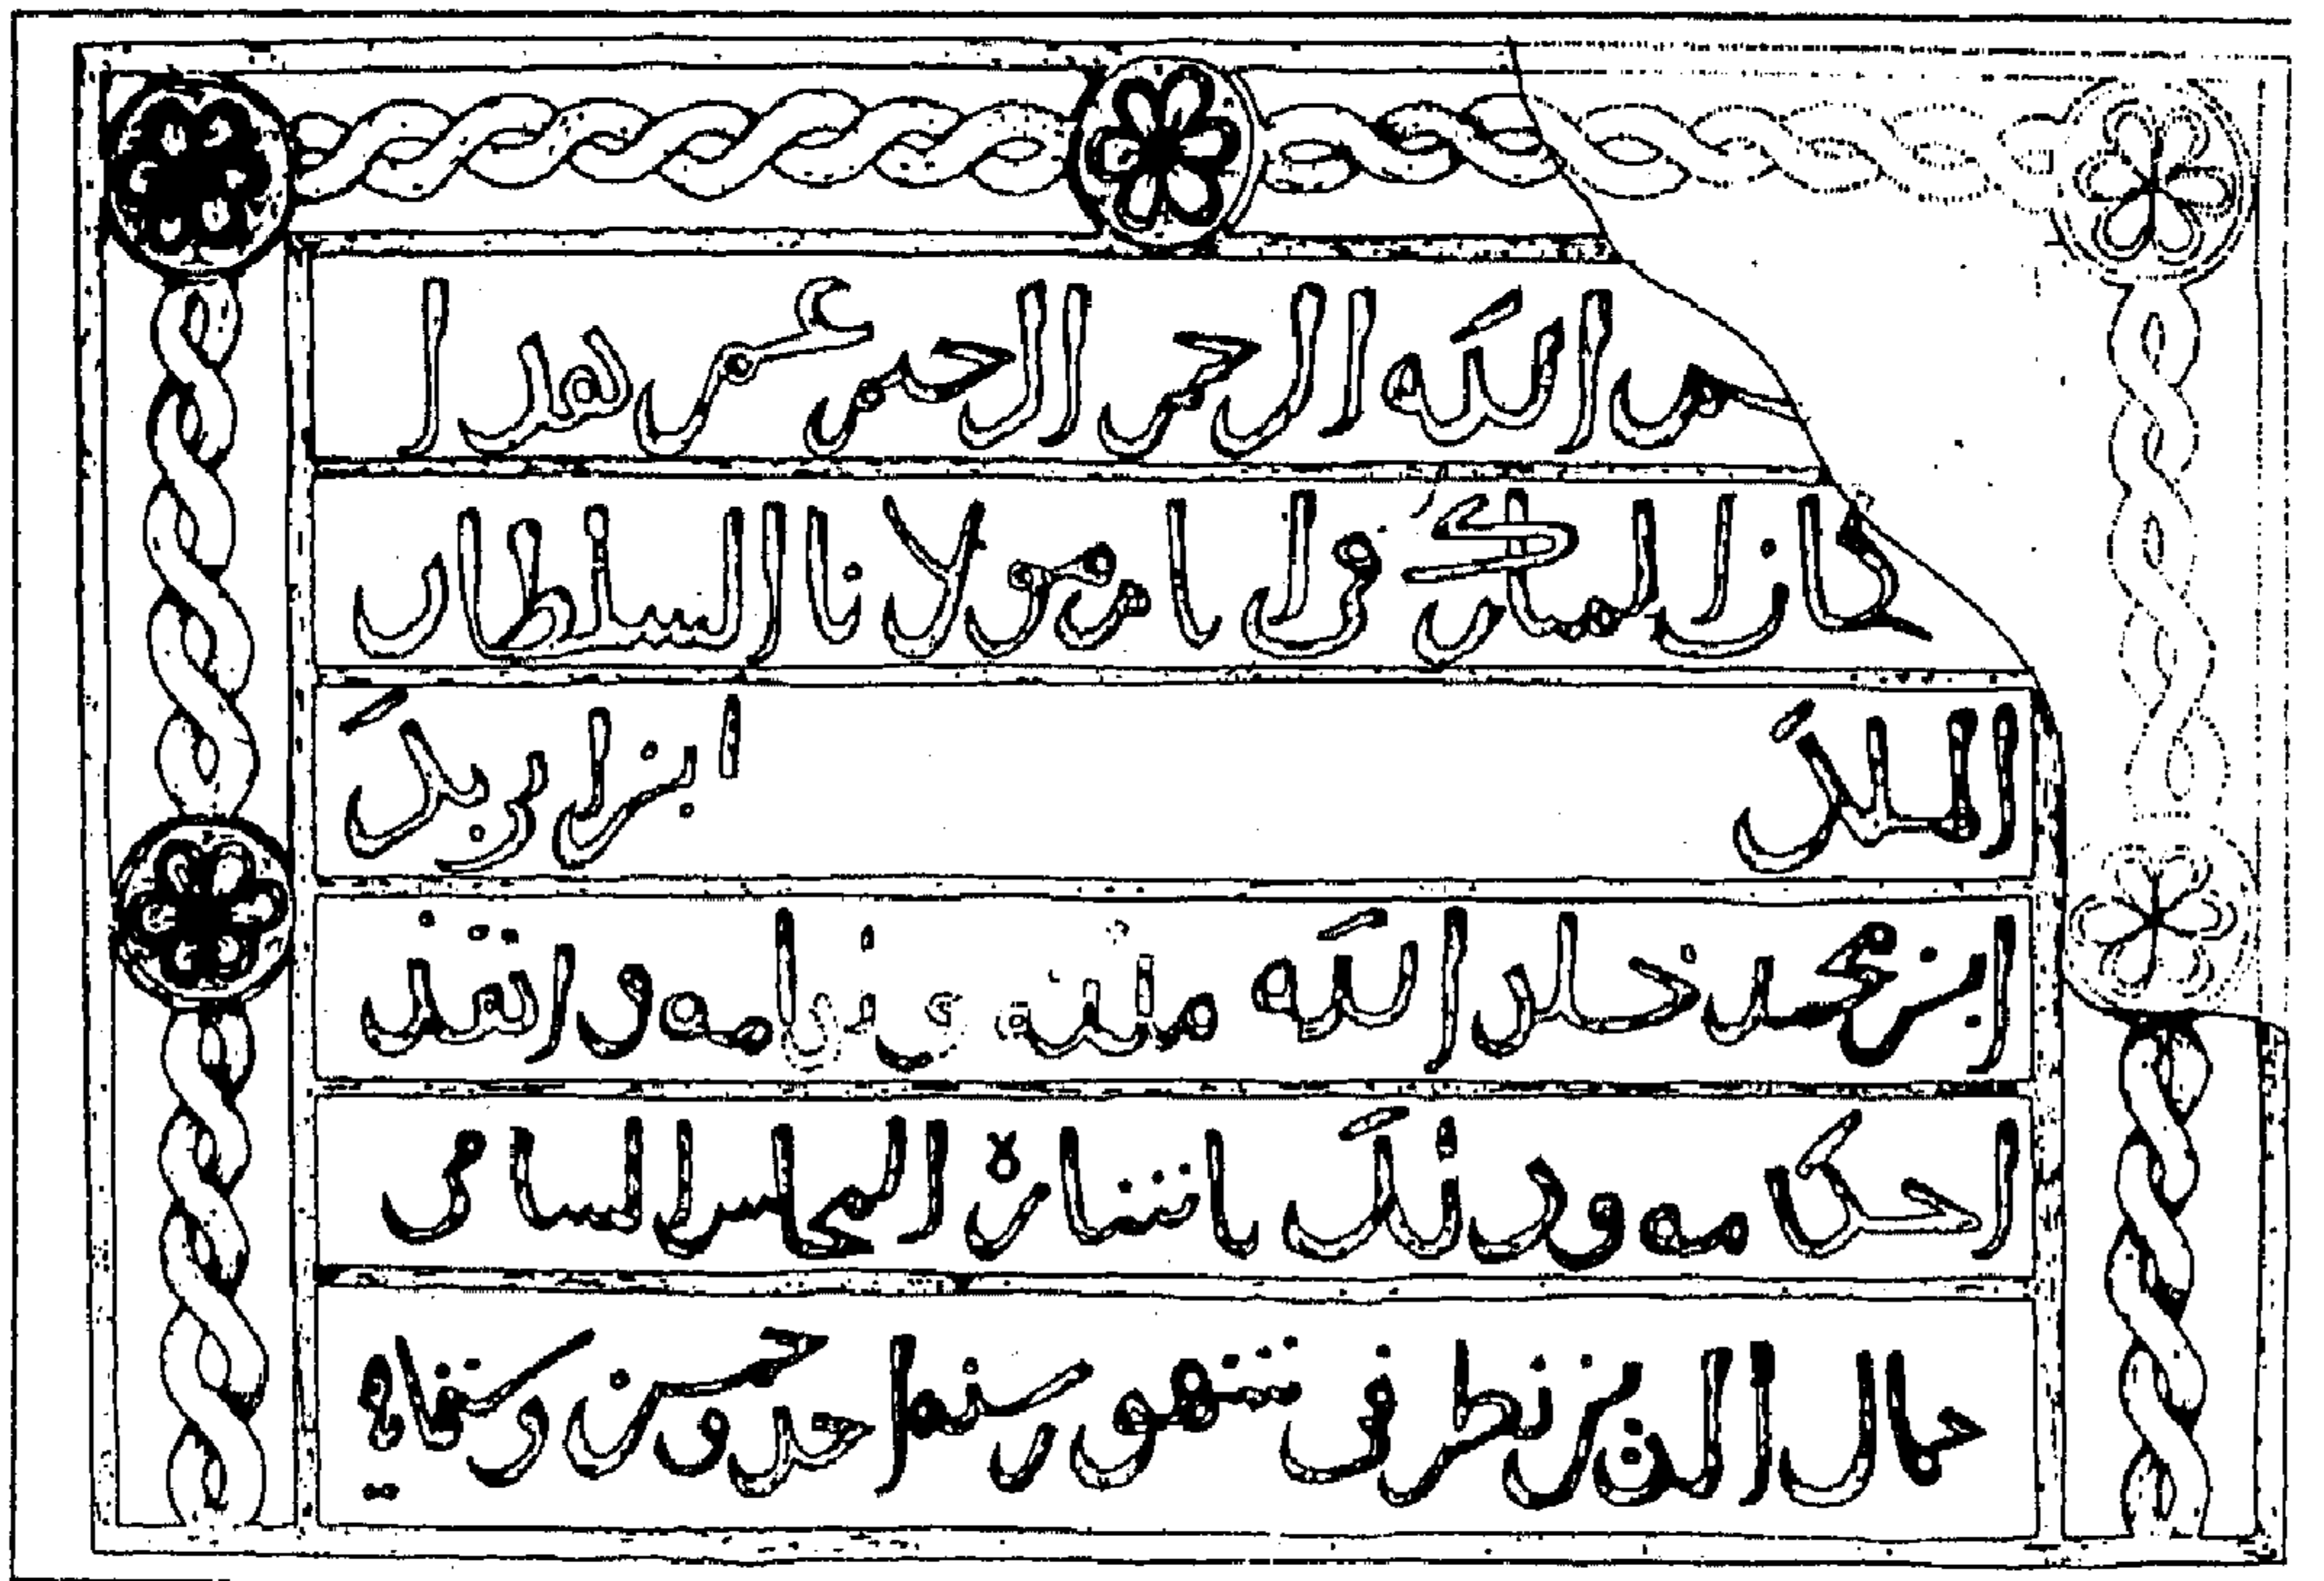 الله الرحمن الرحيم عمر هذا
الخان المبارك في ايام مولانا السلطان
الملك ابن ازبك
ابن محمد خلد الله ملكه ايامه وانفذ
احكامه وذلك باشارة المجلس السامي
جمال الدين بن في شهور سنه احد وخمسين وستمايه